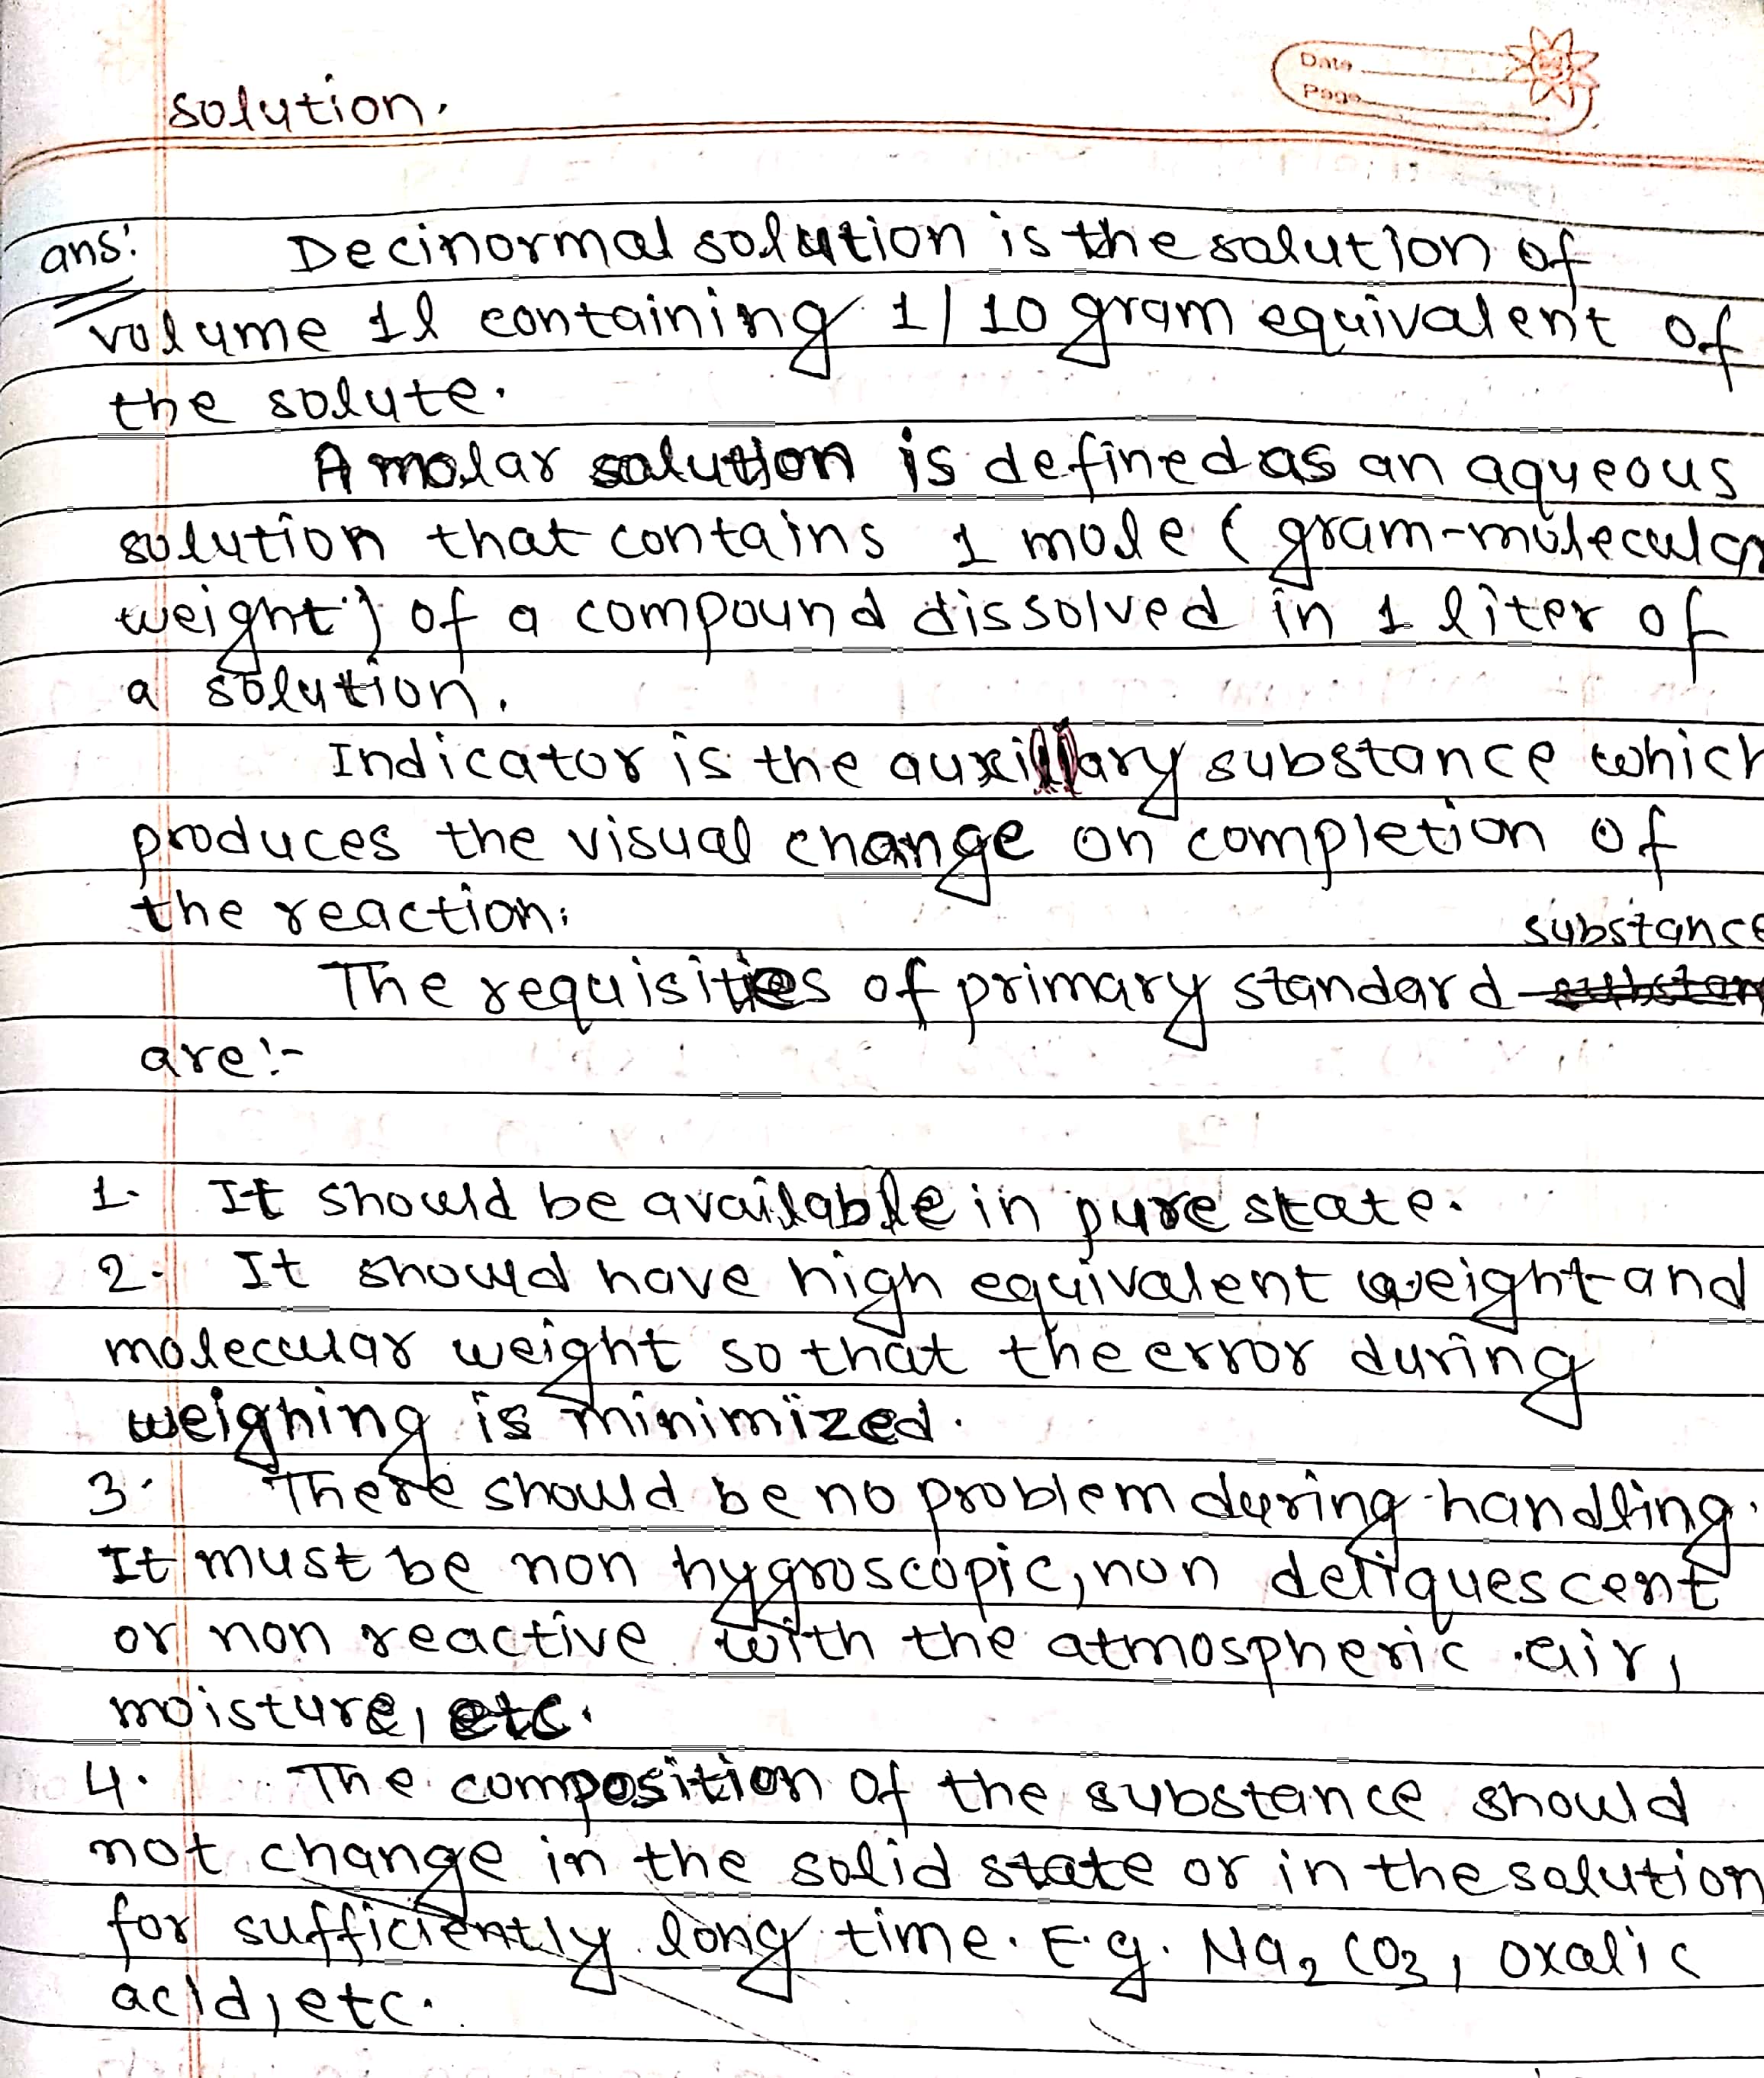 Date
Page
solution.
ans: Decinormal solution is the solution of
volume 1l containing 1/10 gram equivalent of
the solute.
A molar solution is defined as an aqueous
solution that contains 1 mole (gram-molecular
weight) of a compound dissolved in 1 liter of
a solution.
Indicator is the auxillary substance which
produces the visual change on completion of
the reaction.
substance
The requisities of primary standard
are:-
1. It should be available in pure state.
2. It should have high equivalent weight and
molecular weight so that the error during
weighing is minimized.
3. There should be no problem during handling.
It must be non hygroscopic, non deliquescent
or non reactive with the atmospheric air,
moisture, etc.
4. The composition of the substance should
not change in the solid state or in the solution
for sufficiently long time. E.g. Na₂CO₃, oxalic
acid, etc.